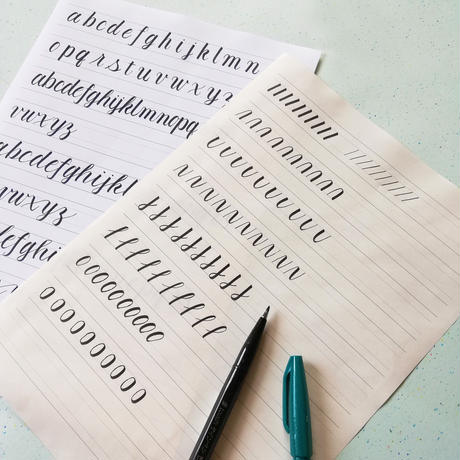 a b c d e f g h i j k l m n
o p q r s t u v w x y z
abcdefghijklmnopq
vwxyz
abcdefghijkl
vwxyz
defghi